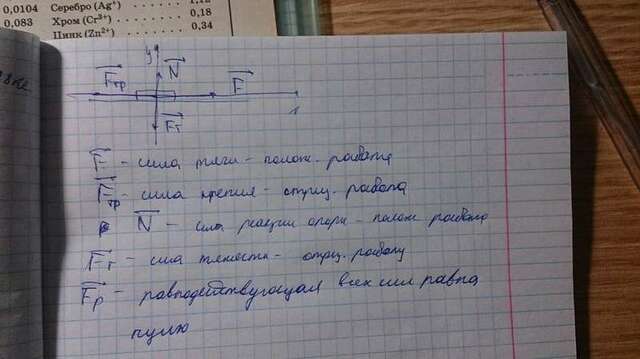 0,0104 Серебро (Ag⁺) 1,12
0,083 Хром (Cr³⁺) 0,18
Цинк (Zn²⁺) 0,34
y
N
Fтр
F
Fт
F – сила тяги – полож. работа
Fтр – сила трения – отриц. работа
N – сила реакции опоры – полож работа
Fт – сила тяжести – отриц. работу
Fр – равнодействующая всех сил равна
нулю